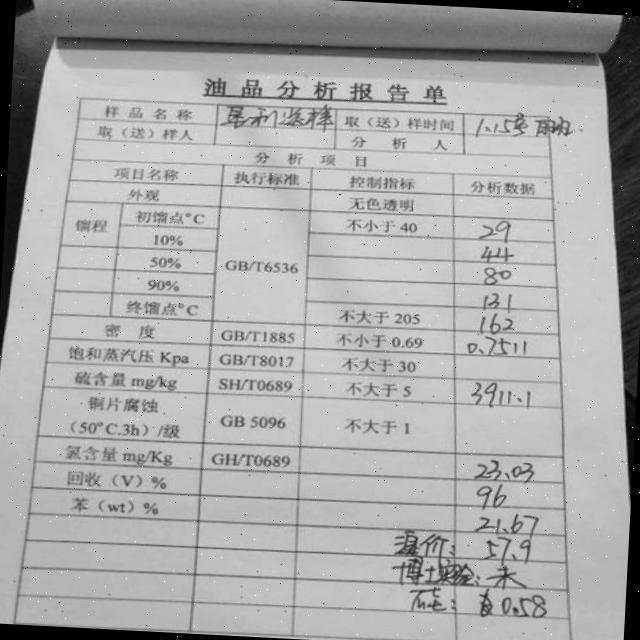 油品分析报告单
样品名称 取（送）样时间 1.15
取（送）样人 分析人
分析项目
项目名称 执行标准 控制指标 分析数据
外观 无色透明
馏程 初馏点°C GB/T6536 不小于40 29
10% 44
50% 80
90% 131
终馏点°C 不大于205 162
密度 GB/T1885 不小于0.69 0.7511
饱和蒸汽压 Kpa GB/T8017 不大于30
硫含量 mg/kg SH/T0689 不大于5 3911.1
铜片腐蚀
（50°C.3h）/级 GB 5096 不大于1
氯含量 mg/Kg GH/T0689 23.03
回收（V）% 96
苯（wt）% 21.67
溴价：57.9
博士实验：未
0.58